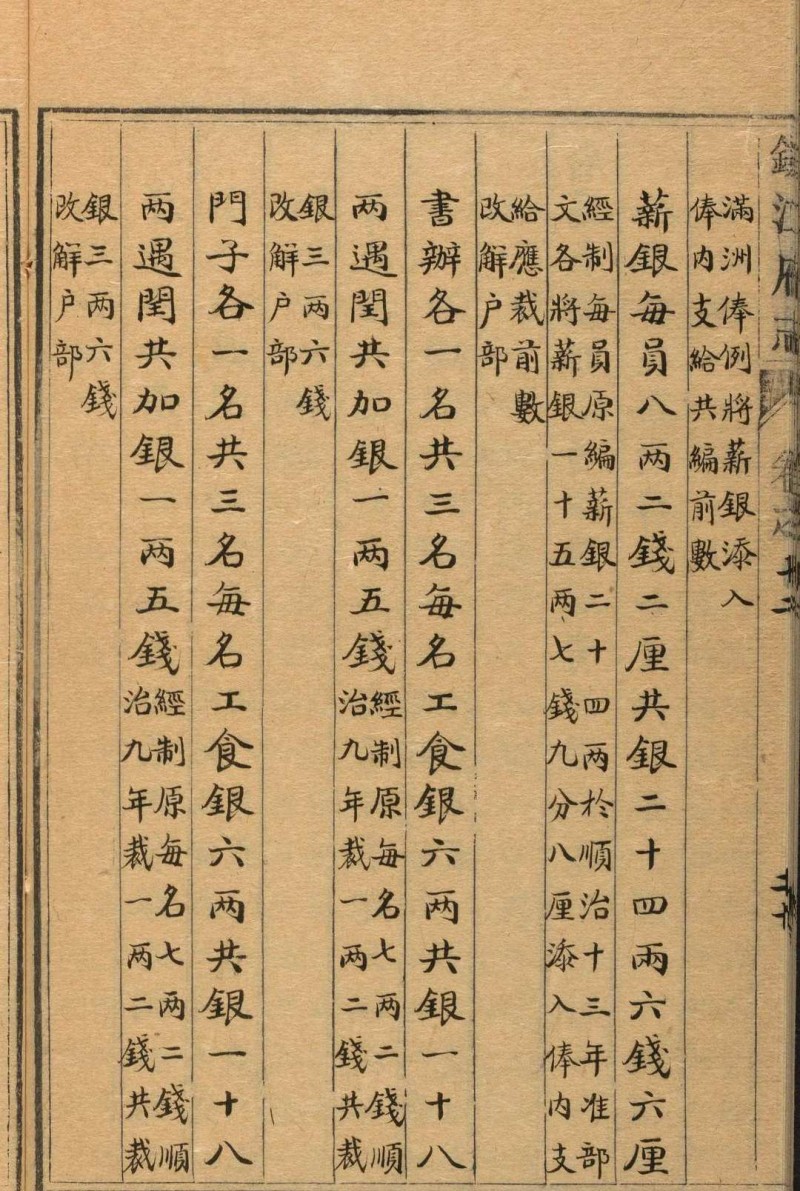 滿洲俸例將薪銀添入
俸内支給共編前數
薪銀每員八两二錢二厘共銀二十四兩六錢六厘
經制每員原編薪銀二十四两於順治十三年准部
文各將薪銀一十五两七錢九分八厘添入俸内支
給應裁前數
改解户部
書辦各一名共三名每名工食銀六两共銀一十八
两遇閏共加銀一两五錢
經制原每名七两二錢順
治九年裁一两二錢共裁
銀三两六錢
改解户部
門子各一名共三名每名工食銀六两共銀一十八
两遇閏共加銀一两五錢
經制原每名七两二錢順
治九年裁一两二錢共裁
銀三两六錢
改解户部